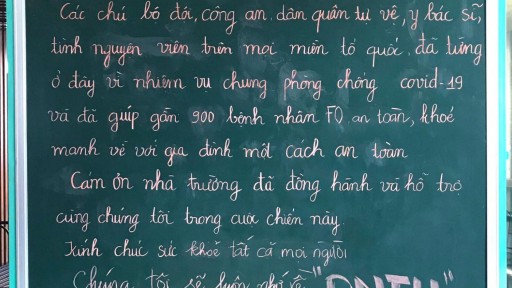 Các chú bộ đội, công an. dân quân tự vệ, y bác sĩ,
tình nguyện viên trên mọi miền tổ quốc. đã từng
ở đây vì nhiệm vụ chung phòng chống covid-19
và đã giúp gần 900 bệnh nhân F0 an toàn, khoẻ
mạnh về với gia đình một cách an toàn
Cám ơn nhà trường đã đồng hành và hỗ trợ
cùng chúng tôi trong cuộc chiến này.
Kính chúc sức khoẻ tất cả mọi người
Chúng tôi sẽ luôn nhớ về "